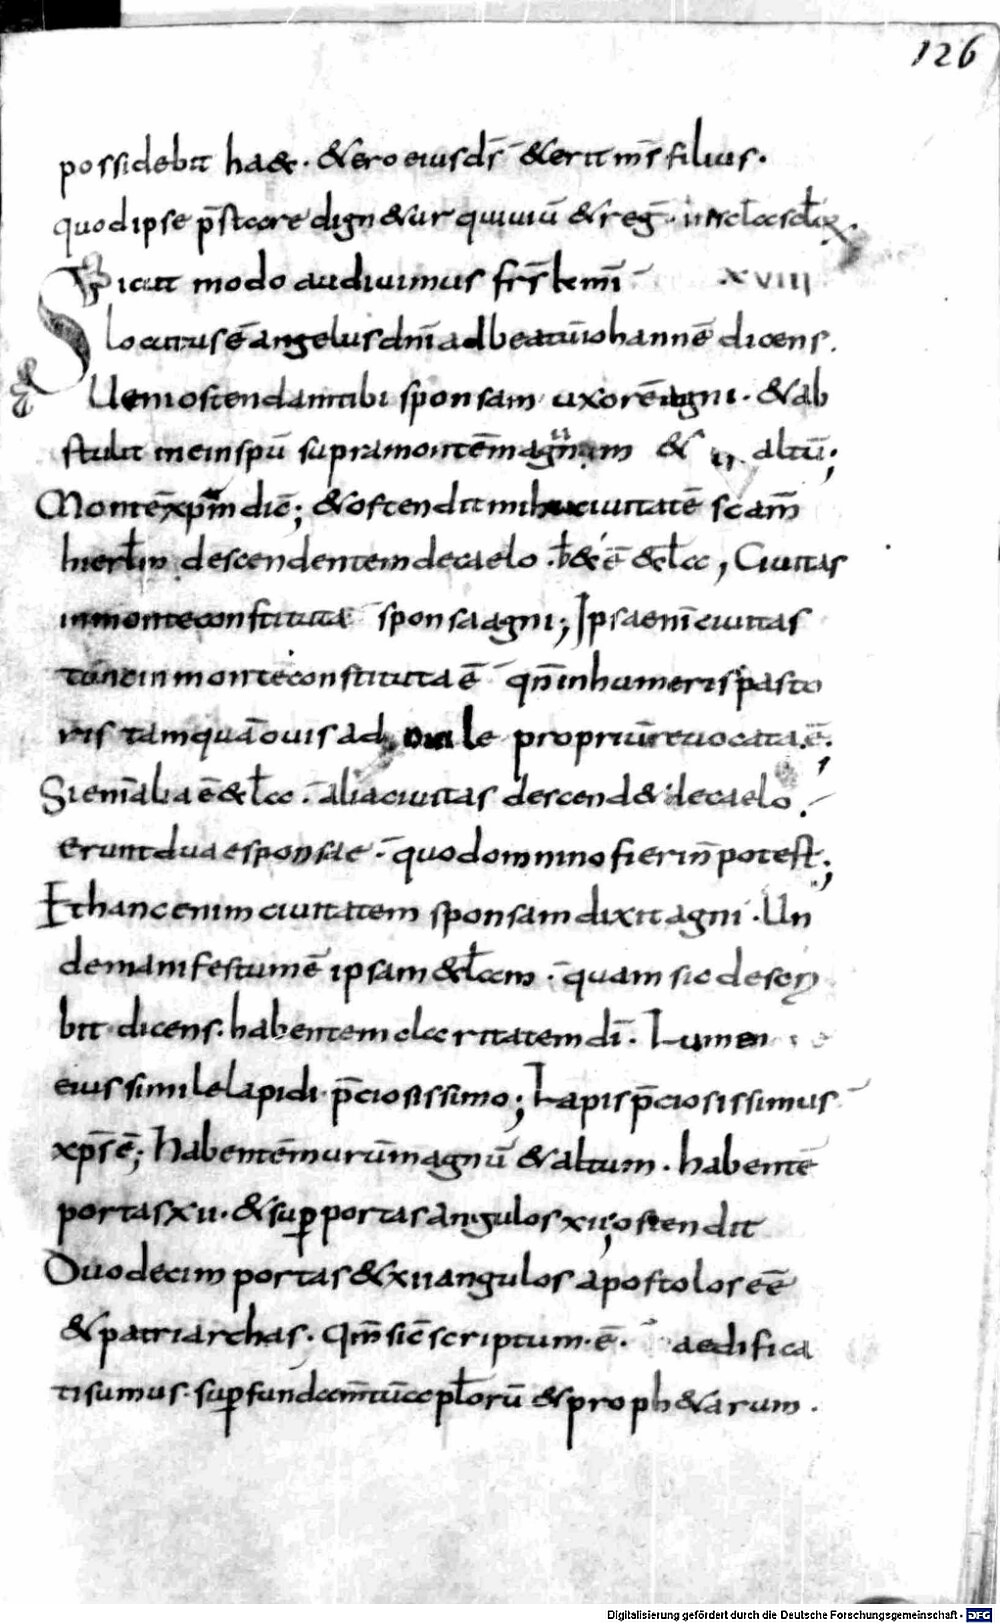 126
possidebit haec. & ero eius ds̄ & erit m̄s filius.
quod ipse p̄stare dign&ur qui uiuit & reḡ. in scla sclox.
Sicut modo audiuimus frs̄ km̄i XVIII
locutus ē angelus dn̄i ad beatū iohannē dicens.
Ueni ostendam tibi sponsam uxorē agni. & ab
stulit me in spū supra montē magnum & altū;
Montē xpm̄ dic̄; & ostendit mihi ciuitatē scam̄
hierlm descendentem de caelo. h& ē &cla, Ciuitas
in monte constituta sponsa agni; Ipsa enī ciuitas
tunc in monte constituta ē qn̄ in humeris pasto
ris tamquā ouis ad ouile propriū reuocata ē;
Si enī alia ē &cla. alia ciuitas descend& de caelo.
erunt duae sponsae. quod omnino fieri n̄ potest;
Et hanc enim ciuitatem sponsam dixit agni. Un
de manifestum ē ipsam &clam. quam sic descri
bit dicens. habentem claritatem dī. Lumen
eius simile lapidi p̄ciosissimo; Lapis p̄ciosissimus
xps̄ ē; habentē murū magnū & altum. habentē
portas xii. & sup portas angulos xii; ostendit
Duodecim portas & xii angulos apostolos eē
& patriarchas. qm̄ sic̄ scriptum. ē. aedifica
ti sumus. sup fundam̄tū aplorū & proph&arum.
Digitalisierung gefördert durch die Deutsche Forschungsgemeinschaft - DFG